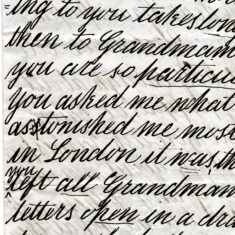 ing to you takes lon
then to Grandmam
you are so particu
You asked me what
astonished me most
in London, it was, th
you
left all Grandmam
letters open in a dra